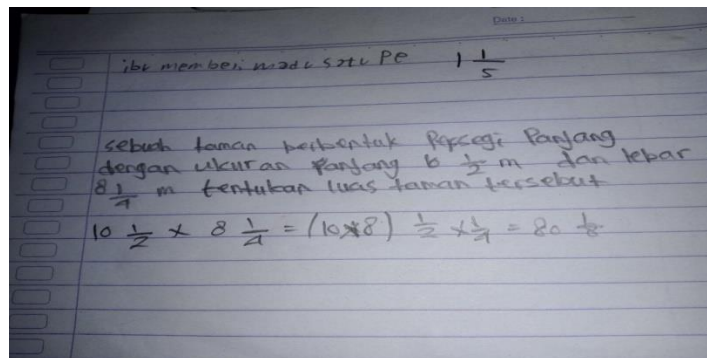 Date :
ibu memberi madu satu Pe 1 1/5
sebuah taman berbentuk Persegi Panjang
dengan ukuran Panjang 6 1/2 m dan lebar
8 1/4 m tentukan luas taman tersebut
10 1/2 x 8 1/4 = (10x8) 1/2 x 1/4 = 80 1/8